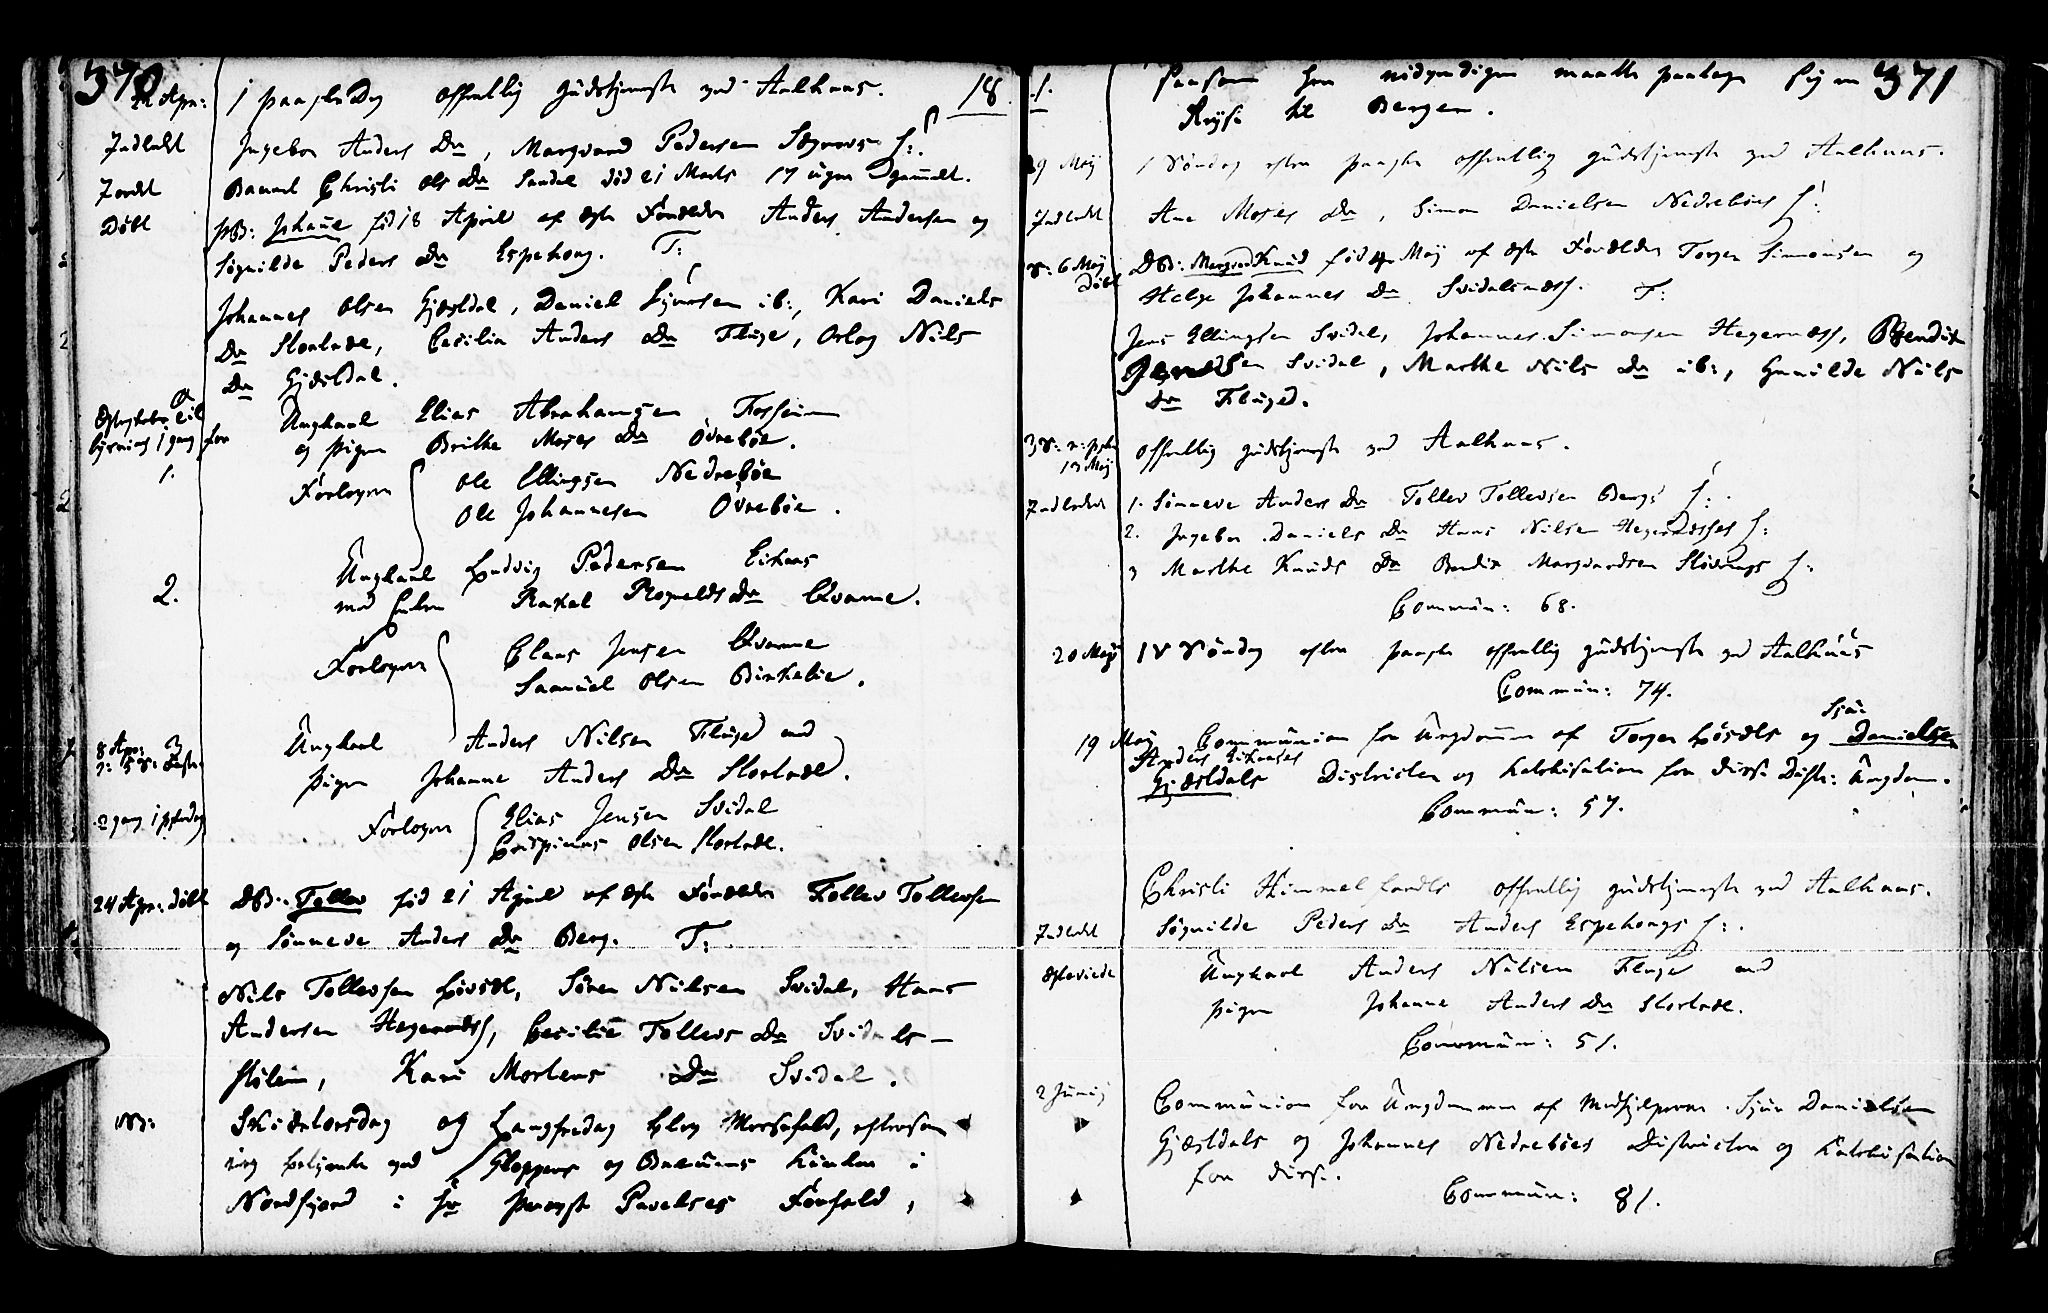 370
22 Apr: 1 paaskeDag offentlig Gudstjeneste ved Aalhuus. 18
Indledt Ingebor Anders Dr, Margvard Pedersen Søgnes H:.
Jordet Barnet Christi Ols Dr Sandal død 21 Marts 17 uger gammelt.
Døbt PB: Johane fød 18 April af ægte Forældre Anders Andersen og
Signilde Peders Dr Espehoug. T:
Johannes Olsen Gjæsdal, Daniel Sjursen ib:, Kari Daniels
Dr Storlade, Cecilia Anders Dr Fluge, Orlog Nils
Dr Gjæsdal.
lysning 1 gang for Ungkarl Elias Abrahamsen Fosseim
og pigen Brithe Moses Dr Øvrebøe.
1. Forlovere Ole Ellingsen Nedrebøe
Ole Johannesen Øvrebøe.
Ungkarl Ludvig Pedersen Eikaas
2. med Enken Rakel Rognalds Dr Qvamme.
Forlovere Claus Jensen Qvamme
Samuel Olsen Birkelie.
8 Apr: 3 Ungkarl Anders Nilsen Fluge med
pigen Johanne Anders Dr Storlade.
Forlovere Elias Jensen Svidal
Crispinus Olsen Storlade.
24 Apr: døbt DB: Tollev fød 21 April af ægte Forældre Tollev Tollevsen
og Sønneve Anders Dr Berg. T:
Nils Tollevsen Høisæt, Søren Nielsen Svidal, Hans
Andersen Hegrenæss, Cecilie Tollevs Dr Svidals-
stølen, Kari Mortens Dr Svidal.
NB: Skiærtorsdag og Langfredag blev Messefald, eftersom
jeg betjente ved Gloppens og Breums Kirker i
Nordfjord i Hr Provst Pavelses Forfald,
1. saasom han nødvendigen maatte paatage sig en 371
Rejse til Bergen.
29 1 Søndag efter paaske offentlig Gudstjeneste ved Aalhuus.
Indledt Ane Moses Dr, Simon Danielsen Nedrebøes H:
d: 6 Maj Døbt DB: Margvard Knud fød 4 Maj af ægte Forældre Torger Simonsen og
Helge Johannes Dr Svidalsnæss. T:
Jens Ellingsen Svidal, Johannes Simonsen Hegrenæss, Bendix
Jensen Svidal, Marthe Nils Dr ib:, Gunilde Nils
Dr Fluge.
13 Maj offentlig Gudstjeneste ved Aalhuus.
Indledede 1. Sønneve Anders Dr Tollev Tollevsen Bergs H:.
2. Ingebor Daniels Dr Hans Nilsen Hegrenæsses H:
3 Marthe Knuds Dr Bendix Margvardsen Støvrings H:
Commun: 68.
20 Maj IV Søndag efter paaske offentlig Gudstjeneste ved Aalhuus
Commun: 74.
Sjur
19 Maj Communion for Ungdommen af Torger Høisæts og Danielsen
Anders Eikaases
Gjæsdals Districter og Katekisation for disse Distr: Ungdom.
Commun: 57.
Christi Himmelfardts offentlig Gudstjeneste ved Aalhuus.
Indledt Signilde Peders Dr Anders Espehougs H:.
Ægteviede Ungkarl Anders Nilsen Fluge med
pigen Johanne Anders Dr Storlade.
Commun: 51.
2 Junij Communion for Ungdommen af Medhjelperne Sjur Danielsen
Gjæsdals og Johannes Nedrebøes Districter og Katekisation
for disse.
Commun: 81.